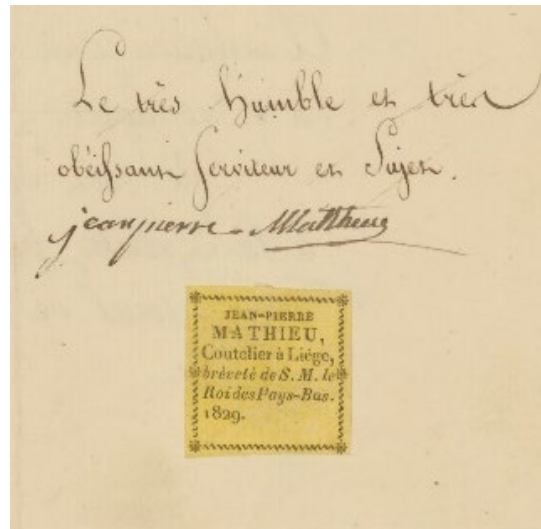 Le très humble et très
obéissant Serviteur et Sujet.
jean pierre Mathieu
JEAN-PIERRE
MATHIEU,
Coutelier à Liége,
bréveté de S. M. le
Roi des Pays-Bas.
1829.